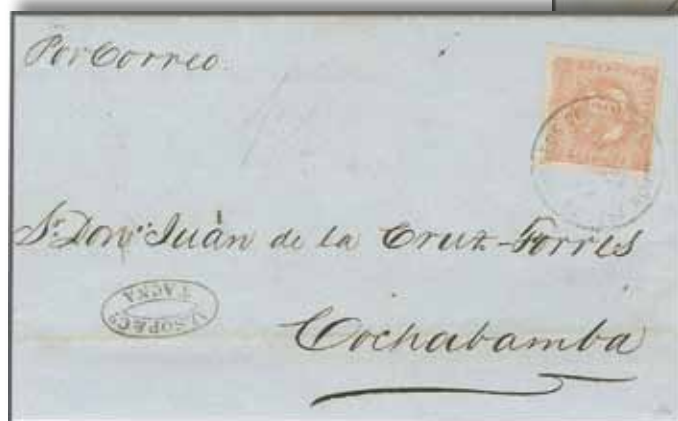 Por Correo
Sr. Don. Juan de la Cruz-Torres
Cochabamba
TACNA